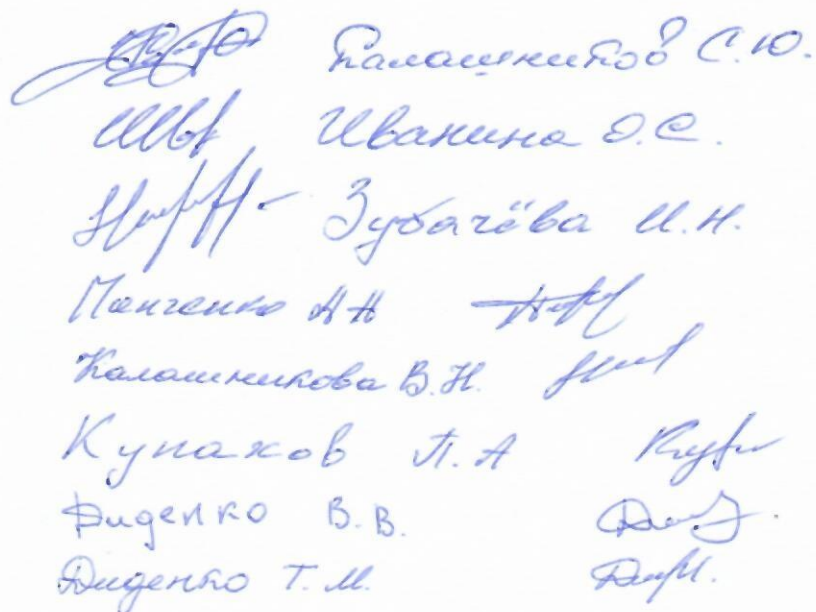 Калашников С.Ю.
Иванина О.С.
Зубачёва И.Н.
Панченко А А
Калашникова В.Н.
Купахов П.А
Диденко В.В.
Диденко Т.М.